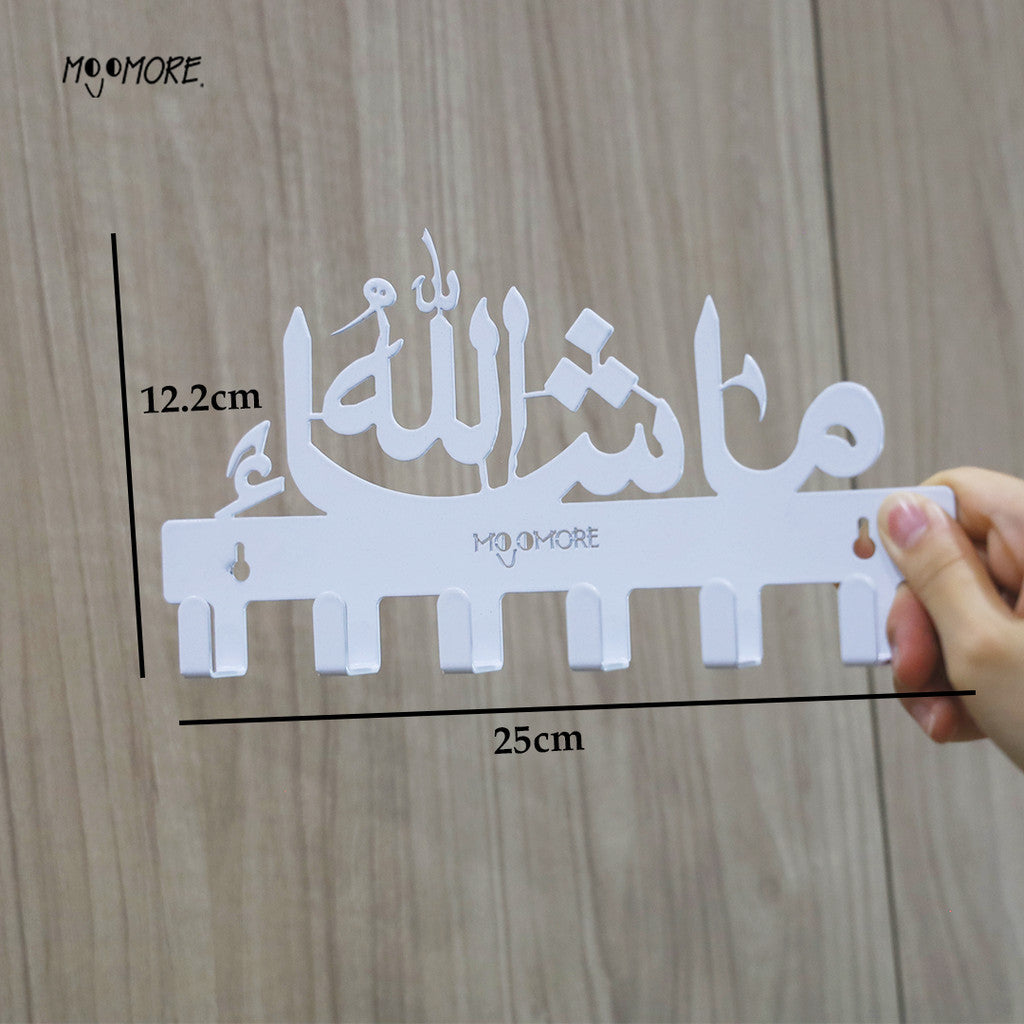 MOJOMORE.
ما شاء الله
12.2cm
MOJOMORE
25cm